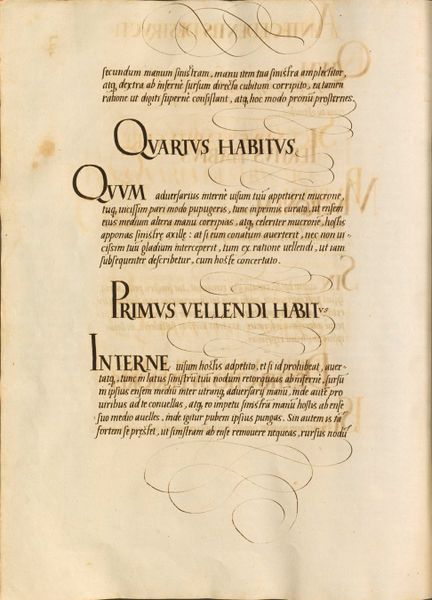 secundum manum sinistram, manu item tua sinistra amplectitor,
atq, dextra ab inferne sursum directa cubitum corripito, ea tamen
ratione ut digiti superne consistant, atq, hoc modo pronū prosternes.
QVARTVS HABITVS.
QVVM adversarius interne uisum tuū appetierit mucrone,
tuq, uicissim pari modo pupugeris, tunc inprimis curato, ut ensem
eius nodum altera manu corripias, atq, celeriter mucrone, hostis
apponas sinistrę axillę: at si eum conatum auerterit, nec non ui-
cissim tuū gladium interceperit, tum ex ratione uellendi, ut iam
subsequenter describetur, cum hoste concertato.
PRIMVS VELLENDI HABITVS
INTERNE uisum hostis adpetito, et si id prohibeat, auer-
tatq, tunc in latus sinistrū tuū nodum retorqueas ab inferne, sursū
in ipsius ensem mediū inter utranq, adversarij manū, inde ante pro
uiribus ad te conuellas, atq, eo impetu sinistra manū hostis ab ense
suo medio auelles, inde igitur pubem ipsius pungas. Sin autem is ita
fortem se prestet, ut sinistram ab ense remouere nequeas, rursus nodū